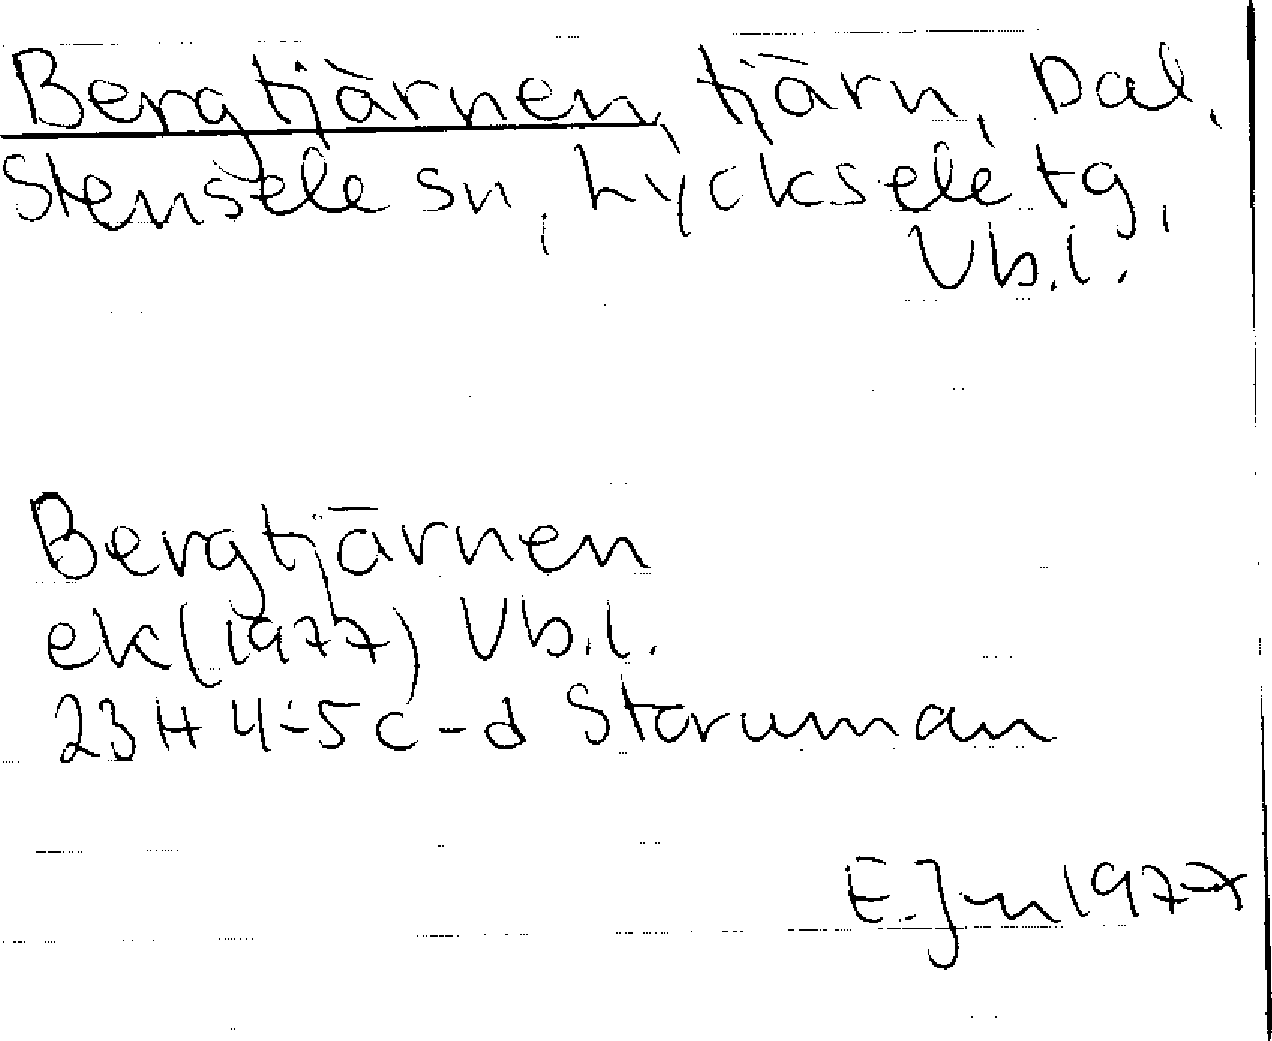 Bergtjärnen, tjärn, Dal,
Stensele sn, Lycksele tg,
Vb.l.
Bergtjärnen
ek (1977) Vb.l.
23H 4-5c-d Storuman
E.Jn 1977